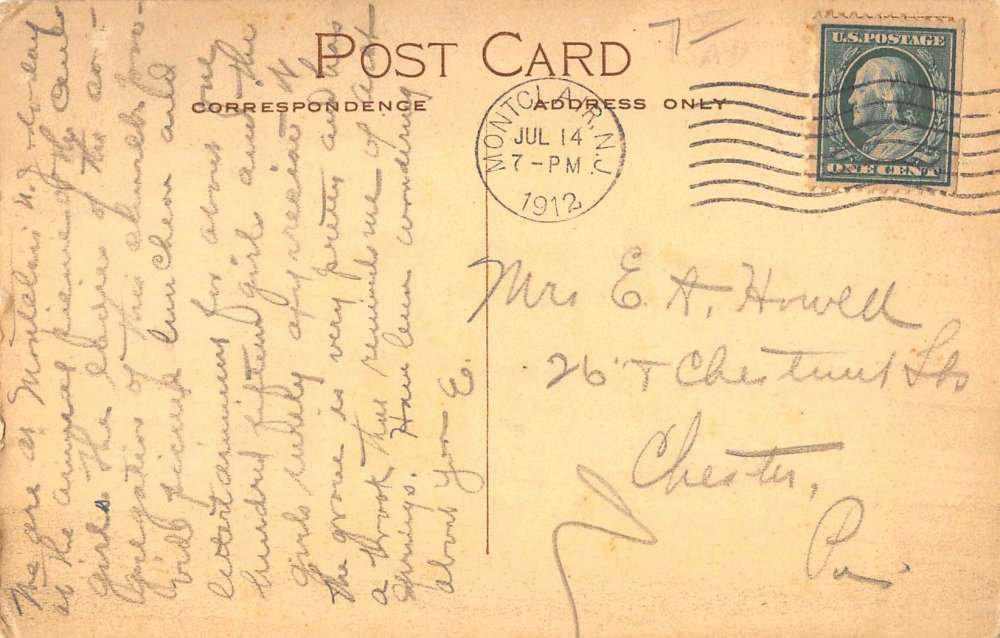 POST CARD
CORRESPONDENCE
ADDRESS ONLY
MONTCLAIR, N.J.
JUL 14
7-PM
1912
U.S. POSTAGE
ONE CENT
Mrs E. A. Howell
26 & Chestnut Sts
Chester,
Pa.
We are at Montclair N.J. to-day
at the annual picnic of the
girls. The ladies of the con-
gregation of this church pro-
vide picnic luncheon and
entertainment for about one
hundred fifteen girls and the
girls surely appreciate it
The grove is very pretty and has
a brook that reminds me of
Springs. Have been wondering
about you E.